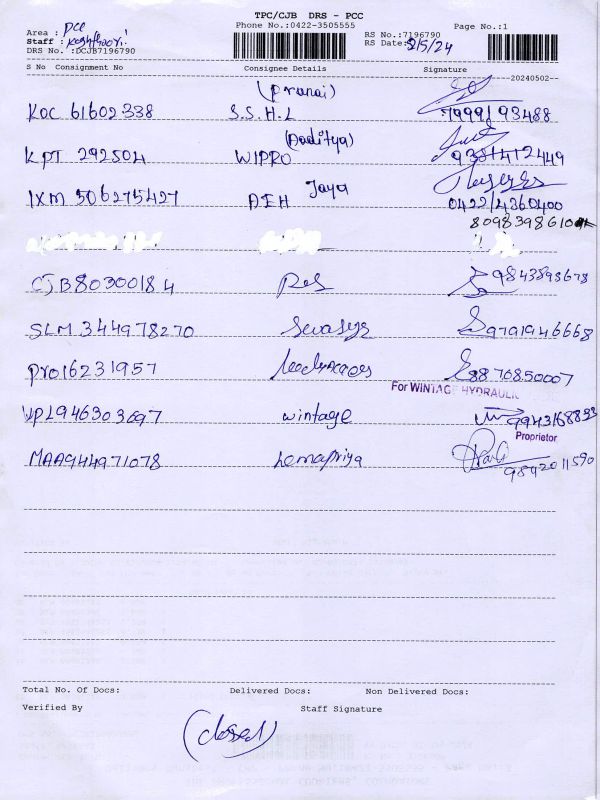 TPC/CJB DRS - PCC
Phone No.:0422-3505555 Page No.:1
Area : PCC RS No.:7196790
Staff : RS Date: 2/5/24
DRS No. :DCJB7196790
S No Consignment No Consignee Details Signature
20240502
(Pranai)
KOC 61602338 S.S.H.L 7999193488
(Aaditya)
KPT 292504 WIPRO 9381412449
IXM 506275427 AEH Jaya 0422/4360400
8098398610
CJB80300184 9843893678
SLM 344978270 9791946668
PRO16231957 8870850007
For WINTAGE HYDRAULIC
VPL946303697 wintage 9943168893
Proprietor
MAA944971078 Hemapriya 9842011590
Total No. Of Docs: Delivered Docs: Non Delivered Docs:
Verified By Staff Signature
(closed)